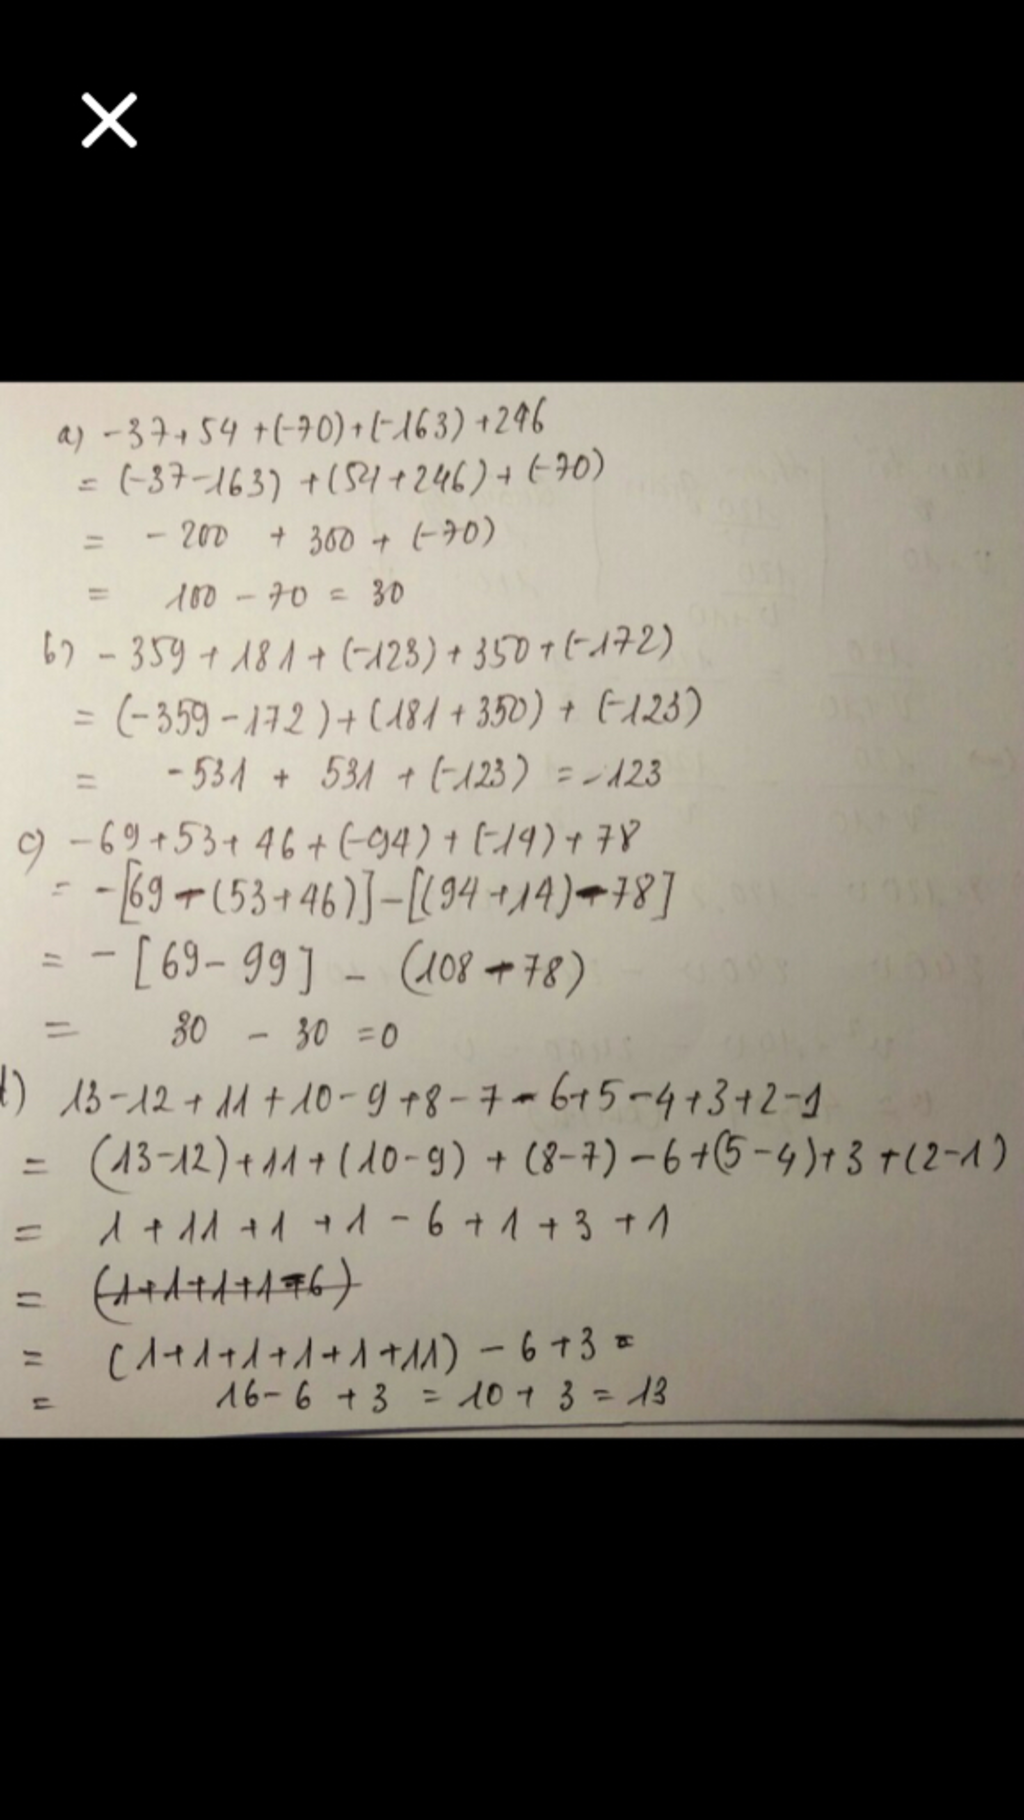 a) -37+54+(-70)+(-163)+246
= (-37-163)+(54+246)+(-70)
= -200 + 300 + (-70)
= 100 - 70 = 30
b) -359+181+(-123)+350+(-172)
= (-359-172)+(181+350)+(-123)
= -531 + 531 + (-123) = -123
c) -69+53+46+(-94)+(-14)+78
= -[69-(53+46)]-[(94+14)-78]
= -[69-99] - (108-78)
= 30 - 30 = 0
d) 13-12+11+10-9+8-7-6+5-4+3+2-1
= (13-12)+11+(10-9)+(8-7)-6+(5-4)+3+(2-1)
= 1+11+1+1-6+1+3+1
= (1+1+1+1-6)
= (1+1+1+1+1+11)-6+3=
= 16-6+3 = 10+3 = 13